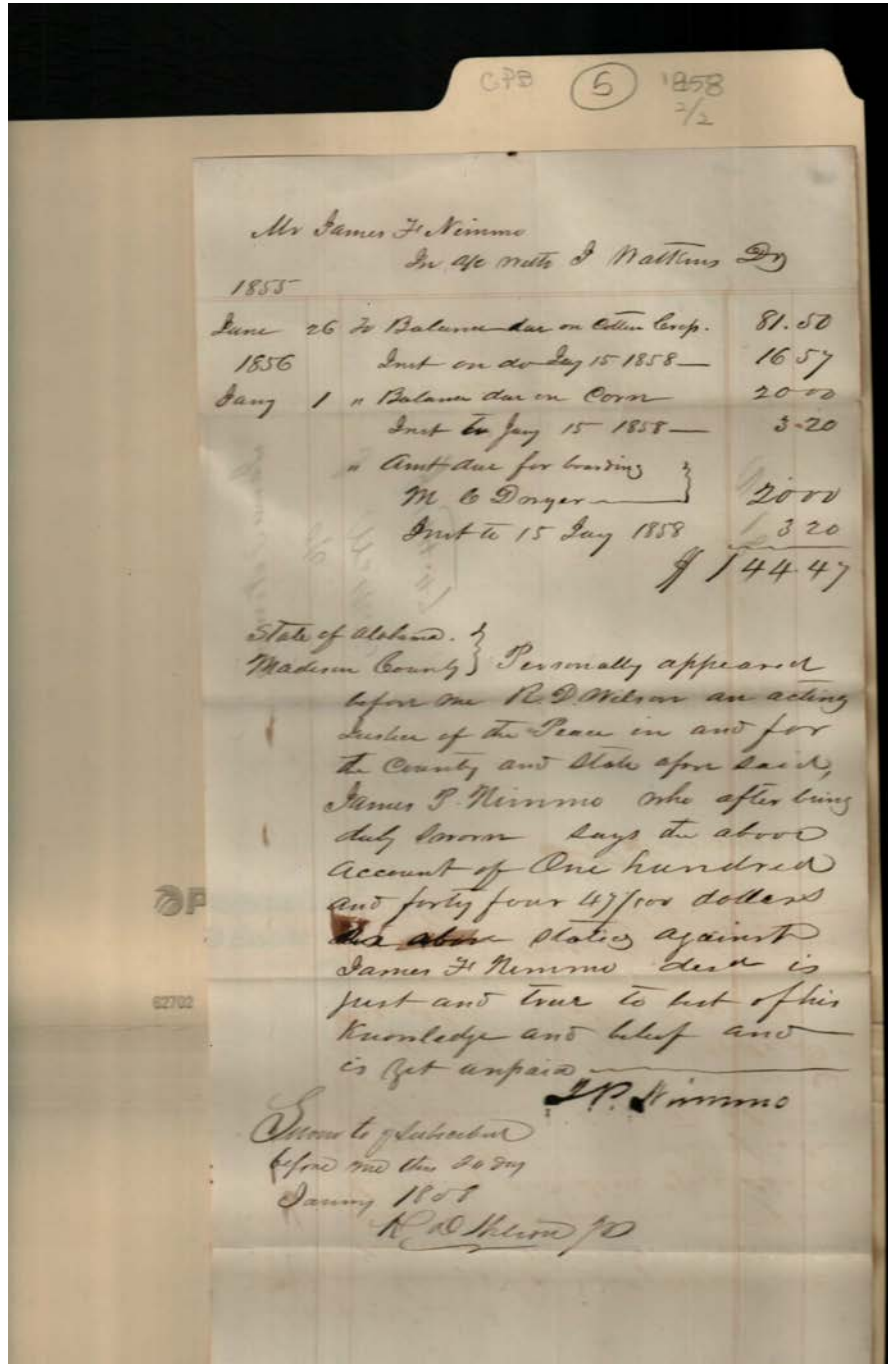 CPB 5 1858
2/2
Mr James F Nimmo
In a/c with J Watkins Dr
1855
June 26 To Balance due on Cotton Crop. 81.50
1856 Inst on do Jay 15 1858 — 16 57
Jany 1 " Balance due on Corn 20 00
Inst to Jay 15 1858 — 3-20
" Amt due for boarding
M C Dwyer — 20 00
Inst to 15 Jay 1858 3 20
$ 144.47
State of Alabama. }
Madison County } Personally appeared
before me R. D. Wilson an acting
Justice of the Peace in and for
the County and State afore said,
James P. Nimmo who after being
duly sworn says the above
account of One hundred
and forty four 47/100 dollars
the above stated against
James F Nimmo decd is
just and true to best of his
Knowledge and belief and
is yet unpaid
J P. Nimmo
P
62702
Sworn to & subscribed
before me this 20 day
January 1858
R D Wilson JP